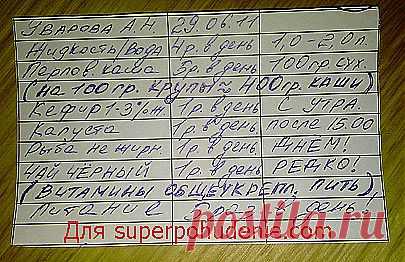 УВАРОВА А.Н. 29.06.11
Жидкость/вода 4р. в день 1,0-2,0л.
Перлов. каша 3р. в день 100гр. сух.
(на 100 гр. крупы ≈ 400гр. каши)
Кефир 1-3%ж. 1р. в день С УТРА.
Капуста 1р. в день после 15.00
Рыба не жирн. 1р. в день ДНЕМ!
ЧАЙ ЧЁРНЫЙ 1р. в день РЕДКО!
(ВИТАМИНЫ ОБЩЕУКРЕПЛ. ПИТЬ)
Питание день!
Для superpohudenie.com
Посты t.ru